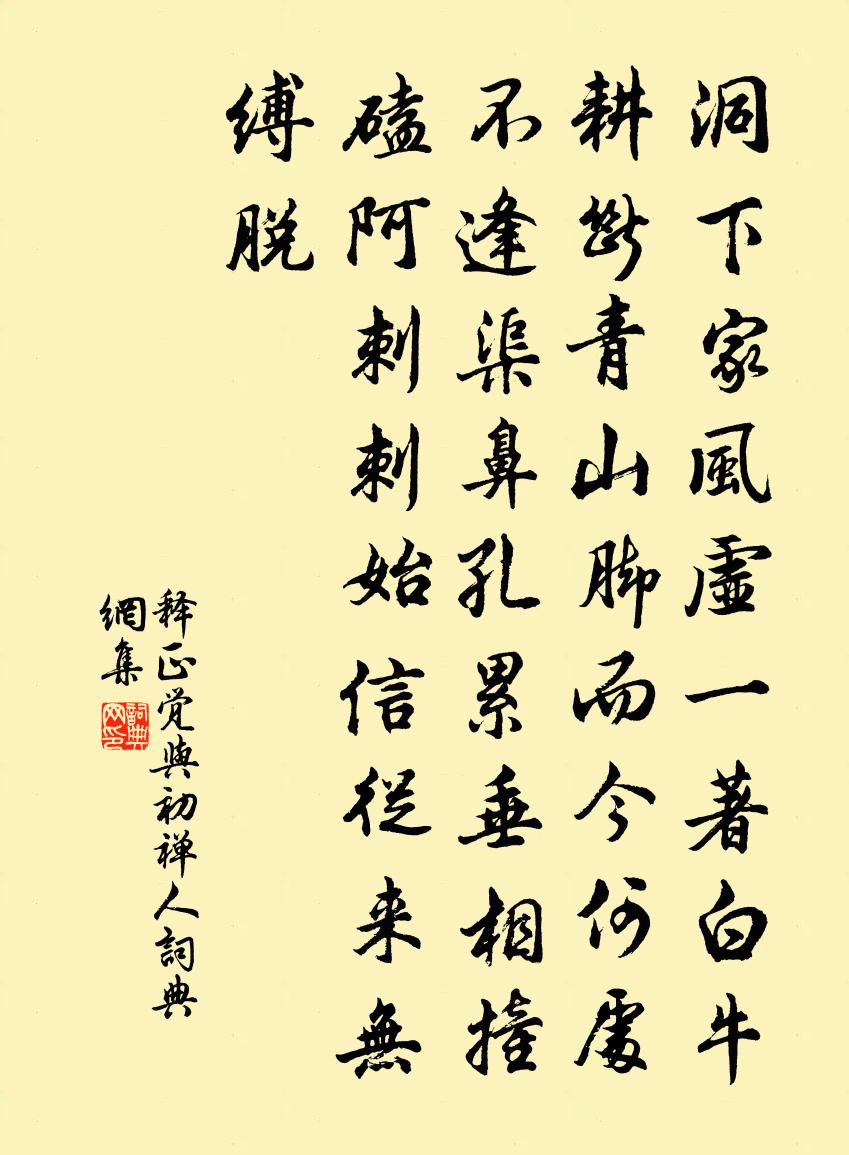 洞下家風虛一著白牛
耕斷青山脚而今何處
不逢渠鼻孔累垂相撞
磕阿剌剌始信從来無
縛脫
释正觉與初禅人詞典
網集
詞典网印